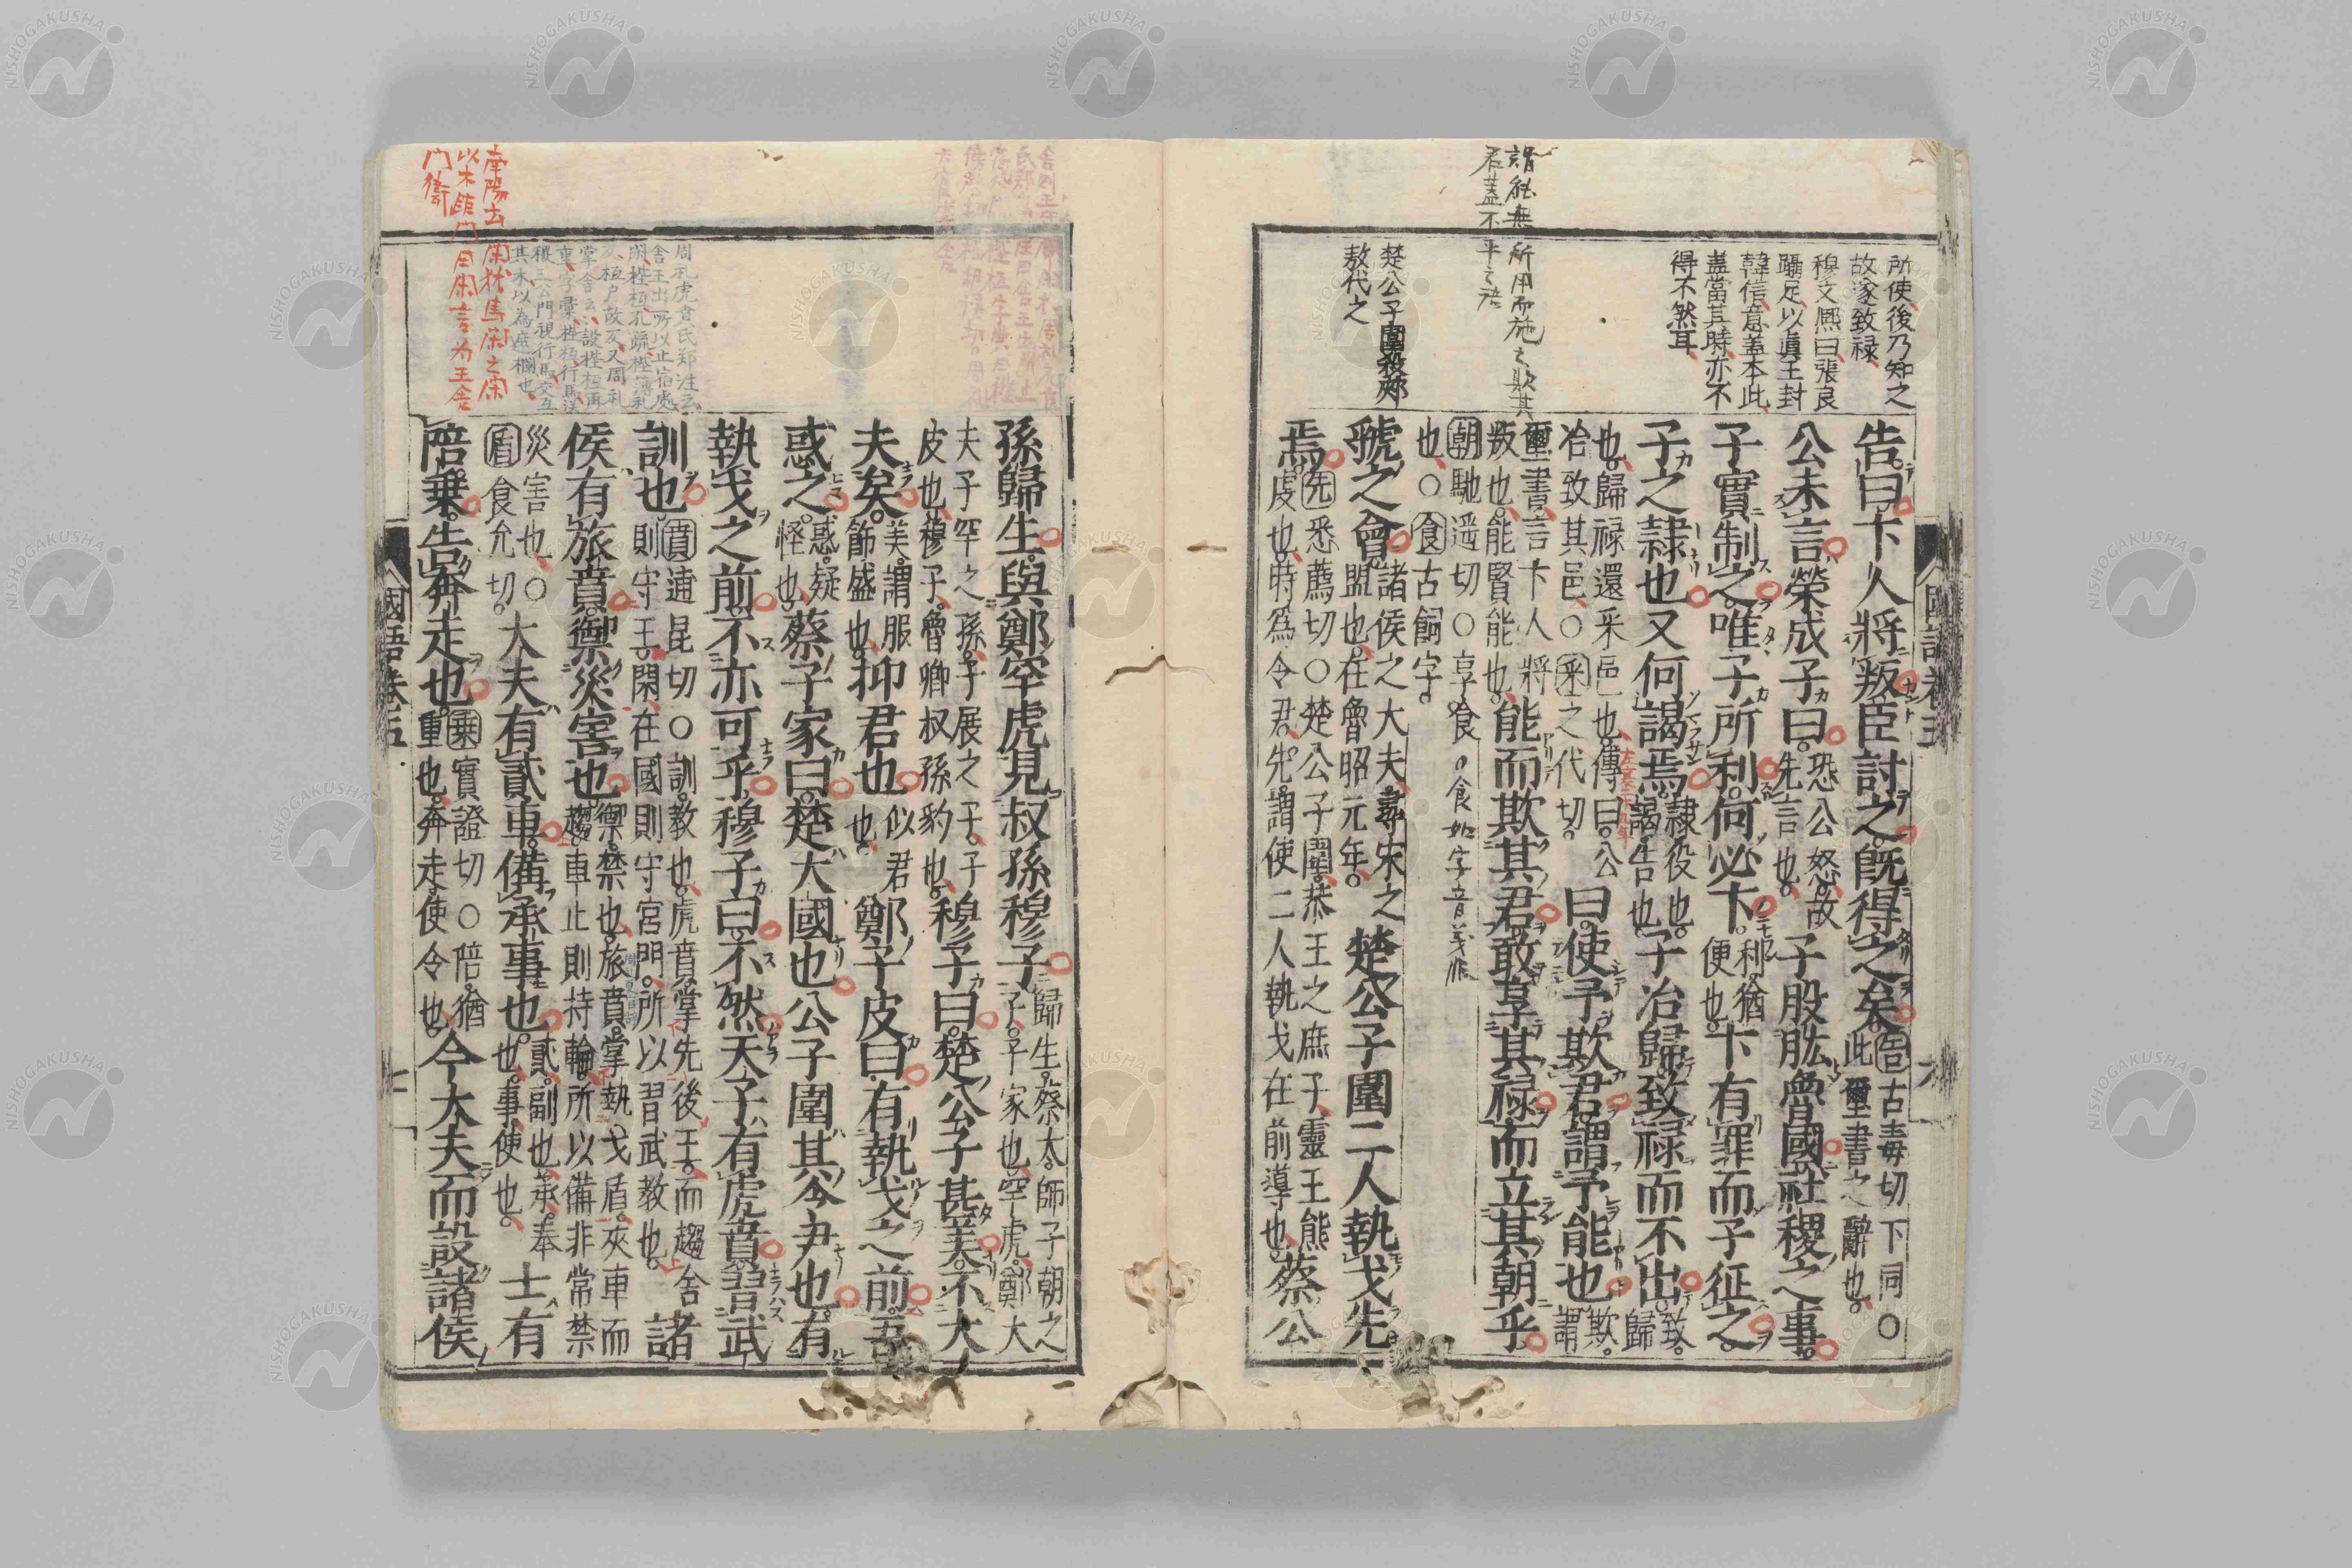 所使後乃知之
故遂致祿
穆文熙曰張良
躡足以真王封
韓信意蓋本此
蓋當其時亦不
得不然耳
謂能無所用而施之欺其
君蓋不平之語
楚公子圍殺郟
敖代之
告曰卞人將叛臣討之既得之矣
告古毒切下同〇
此璽書之辭也
公未言榮成子曰
恐公怒故
先言也
子股肱魯國社稷之事
子實制之唯子所利何必卞
利猶
便也
卞有罪而子征之
子之隷也又何謁焉
隷役也
謁告也
子冶歸致祿而不出
致
歸
也歸祿還采邑也傳曰公
冶致其邑〇采之代切
曰使予欺君謂予能也
欺
謂
璽書言卞人將
叛也能賢能也
能而欺其君敢享其祿而立其朝乎
朝馳遥切〇享食
也〇食古飼字
食如字音義非
虢之會
諸侯之大夫尋宋之
盟也在魯昭元年
楚公子圍二人執戈先
焉
先悉薦切〇楚公子圍恭王之庶子靈王熊
虔也時為令君先謂使二人執戈在前導也
蔡公
國語卷五
孫歸生與鄭罕虎見叔孫穆子
歸生蔡太師子朝之
子子家也罕虎鄭大
夫子罕之孫子展之子子
皮也穆子魯卿叔孫豹也
穆子曰楚公子甚美不大
夫矣
美謂服
飾盛也
抑君也
似君
也
鄭子皮曰有執戈之前吾
惑之
惑疑
怪也
蔡子家曰楚大國也公子圍其令尹也有
執戈之前不亦可乎穆子曰不然天子有虎賁習武
訓也
賁逋昆切〇訓教也虎賁掌先後王而趨舍
則守王閑在國則守宮門所以習武教也
諸
侯有旅賁禦災害也
禦禁也旅賁掌執戈盾夾車而
趨車止則持輪所以備非常禁
災害也〇
盾食允切
大夫有貳車備承事也
貳副也承奉
也事使也
士有
陪乘告奔走也
乘實證切〇陪猶
重也奔走使令也
今大夫而設諸侯
國語卷五